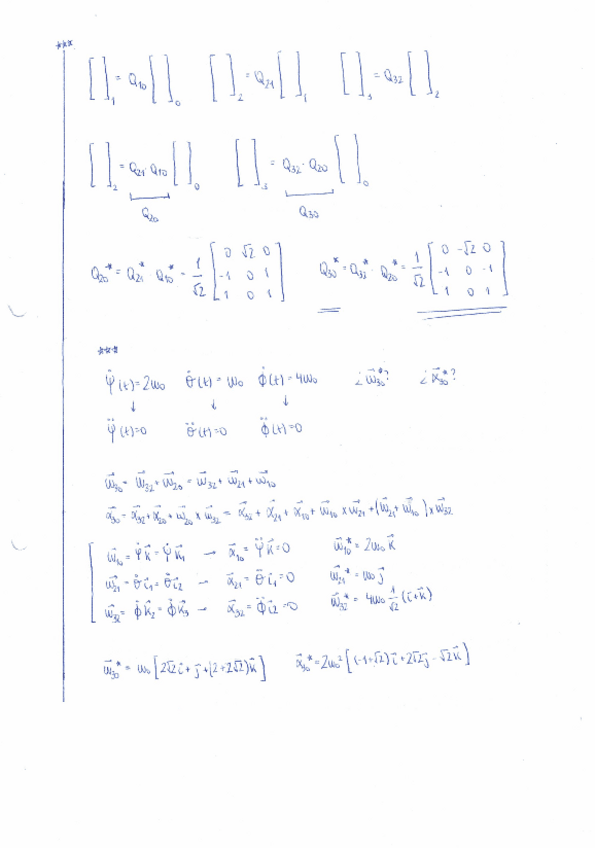 ***
[ ]₁ = Q₁₀ [ ]₀   [ ]₂ = Q₂₁ [ ]₁   [ ]₃ = Q₃₂ [ ]₂
[ ]₂ = Q₂₁·Q₁₀ [ ]₀   [ ]₃ = Q₃₂·Q₂₀ [ ]₀
Q₂₀   Q₃₀
Q₂₀* = Q₂₁*·Q₁₀* = 1/√2 [0 √2 0; -1 0 1; 1 0 1]   Q₃₀* = Q₃₂*·Q₂₀* = 1/√2 [0 -√2 0; -1 0 -1; 1 0 1]
***
ψ̇(t)=2ω₀   θ̇(t)=ω₀   ϕ̇(t)=4ω₀   ¿ω⃗₃₀*?   ¿α⃗₃₀*?
↓   ↓   ↓
ψ̈(t)=0   θ̈(t)=0   ϕ̈(t)=0
ω⃗₃₀ = ω⃗₃₂+ω⃗₂₀ = ω⃗₃₂+ω⃗₂₁+ω⃗₁₀
α⃗₃₀ = α⃗₃₂+α⃗₂₀+ω⃗₂₀×ω⃗₃₂ = α⃗₃₂+α⃗₂₁+α⃗₁₀+ω⃗₁₀×ω⃗₂₁+(ω⃗₂₁+ω⃗₁₀)×ω⃗₃₂
ω⃗₁₀ = ψ̇k⃗ = ψ̇k⃗₁ → α⃗₁₀ = ψ̈k⃗ = 0   ω⃗₁₀* = 2ω₀k⃗
ω⃗₂₁ = θ̇i⃗₁ = θ̇i⃗₂ → α⃗₂₁ = θ̈i⃗₁ = 0   ω⃗₂₁* = ω₀j⃗
ω⃗₃₂ = ϕ̇k⃗₂ = ϕ̇k⃗₃ → α⃗₃₂ = ϕ̈i⃗₂ = 0   ω⃗₃₂* = 4ω₀ 1/√2 (i⃗+k⃗)
ω⃗₃₀* = ω₀[2√2i⃗+j⃗+(2+2√2)k⃗]   α⃗₃₀* = 2ω₀²[(-1+√2)i⃗+2√2j⃗-√2k⃗]